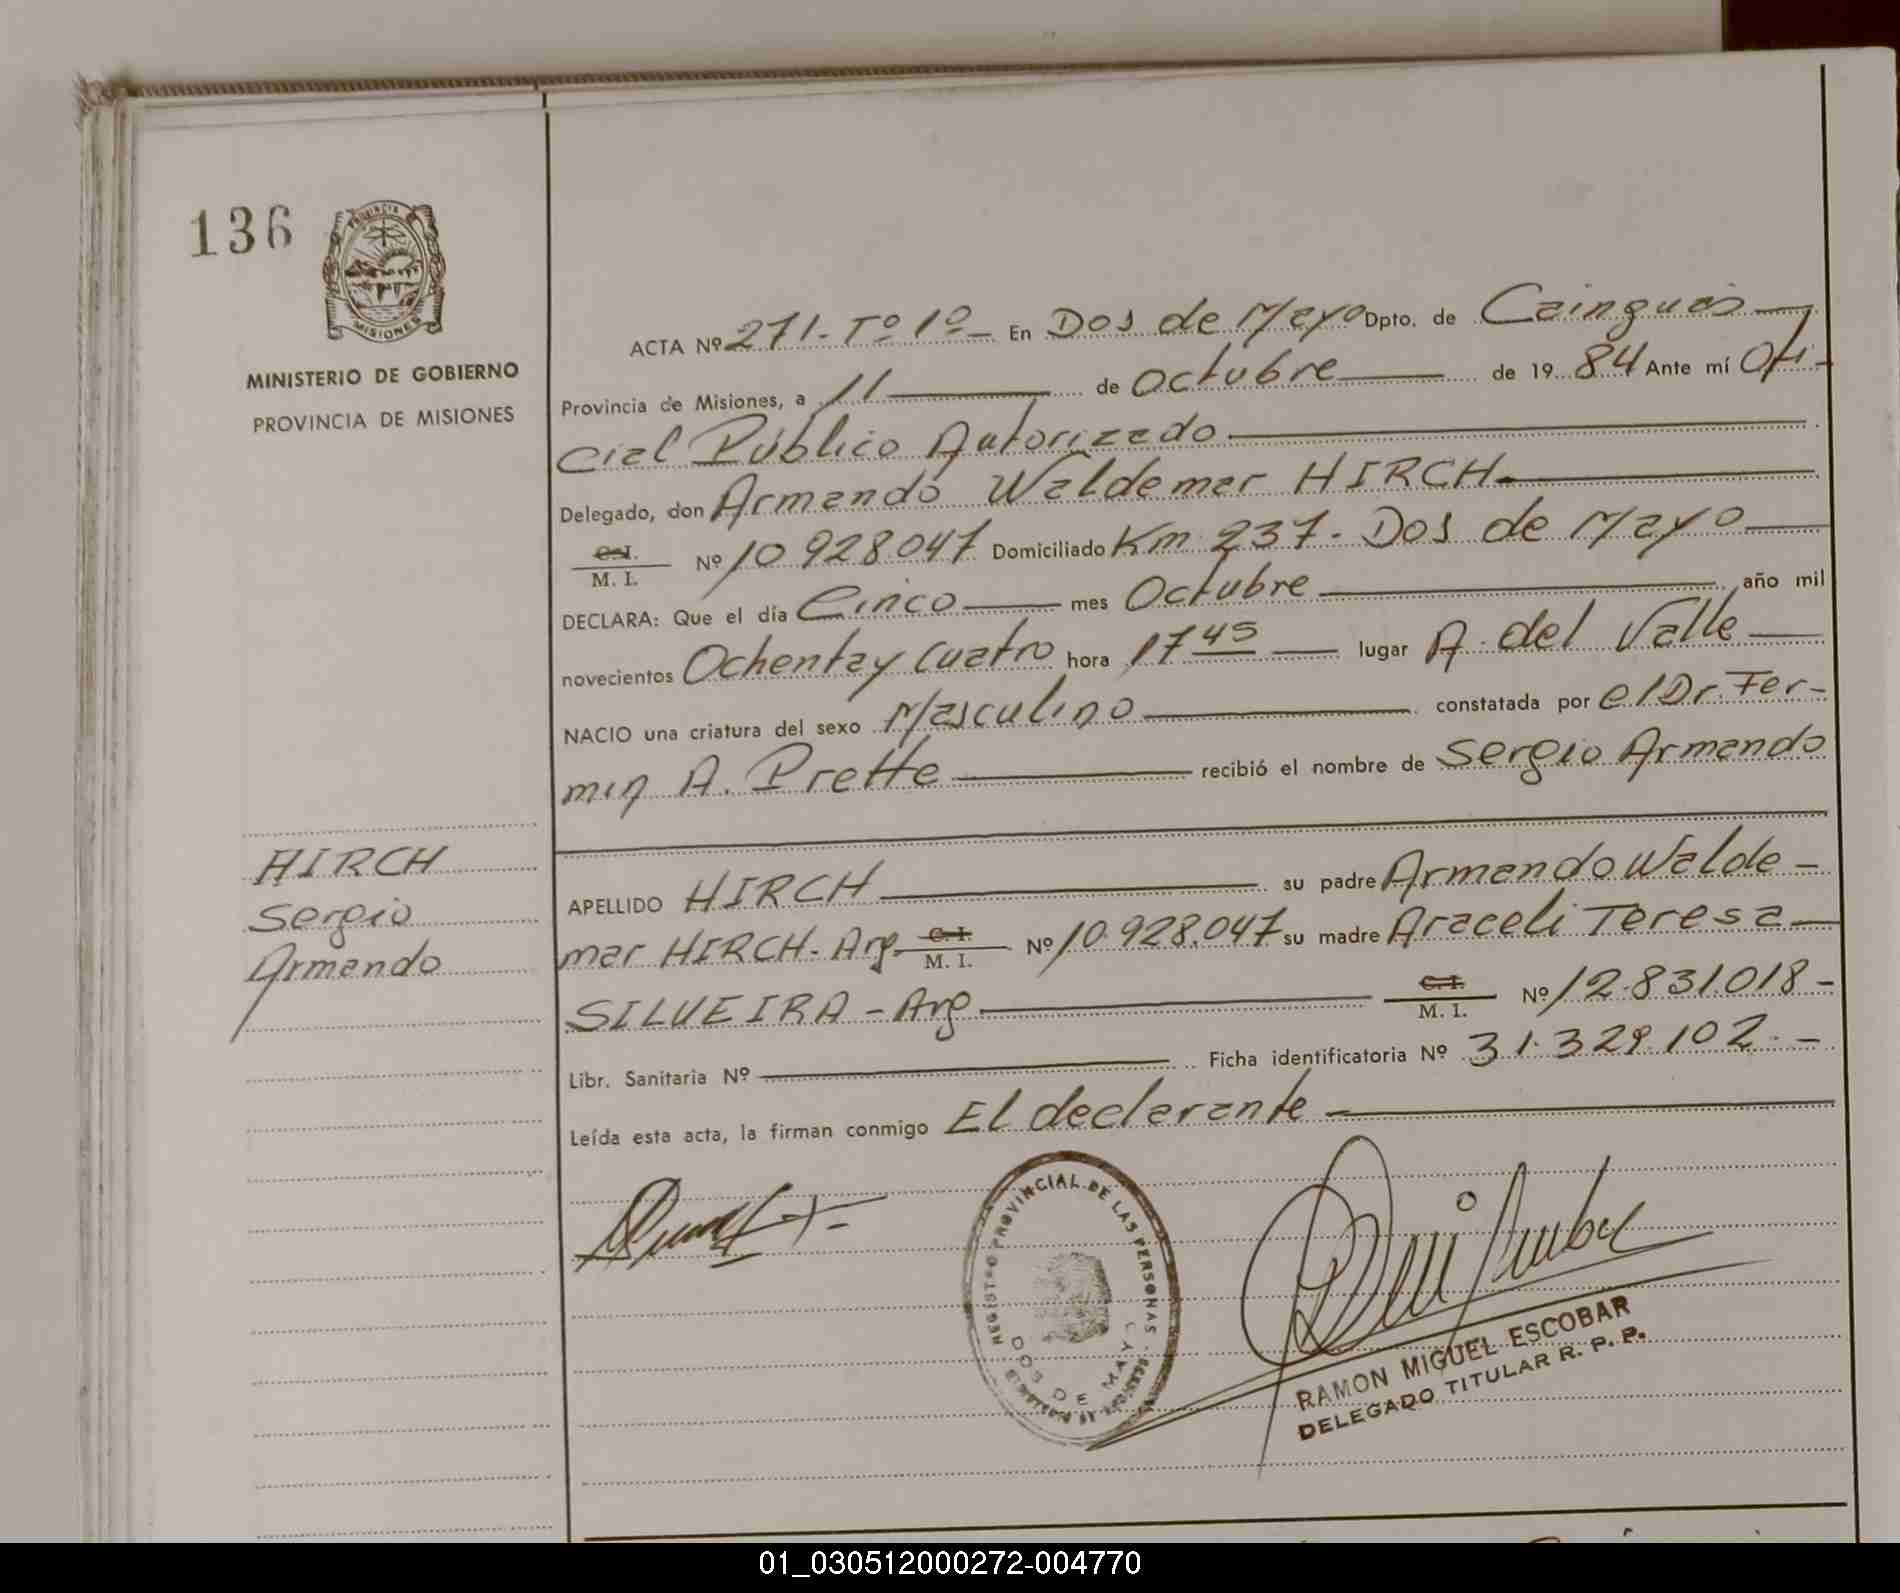 136
PROVINCIA
MISIONES
MINISTERIO DE GOBIERNO
PROVINCIA DE MISIONES
ACTA Nº 271-Tº 1º- En Dos de Mayo Dpto. de Cainguás
Provincia de Misiones, a 11 de Octubre de 1984 Ante mí Ofi-
cial Público Autorizado
Delegado, don Armando Waldemar HIRCH
C.I.
M. I. Nº 10.928.047 Domiciliado Km 237- Dos de Mayo
DECLARA: Que el día Cinco mes Octubre año mil
novecientos Ochenta y Cuatro hora 17 45 lugar A. del Valle
NACIO una criatura del sexo Masculino constatada por el Dr. Fer-
min A. Prette recibió el nombre de Sergio Armando
HIRCH
Sergio
Armando
APELLIDO HIRCH su padre Armando Walde-
mar HIRCH- Arg. C.I. M. I. Nº 10.928.047 su madre Araceli Teresa
SILVEIRA - Arg. C.I. M. I. Nº 12.831.018-
Libr. Sanitaria Nº Ficha identificatoria Nº 31.329.102.-
Leída esta acta, la firman conmigo El declarante -
REGISTRO PROVINCIAL DE LAS PERSONAS
DOS DE MAYO
RAMON MIGUEL ESCOBAR
DELEGADO TITULAR R. P. P.
01_030512000272-004770